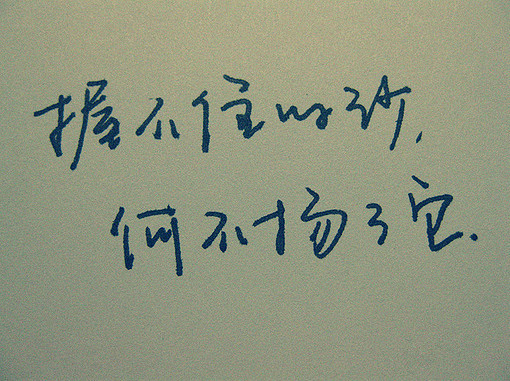 握不住的沙,
何不扬了它.